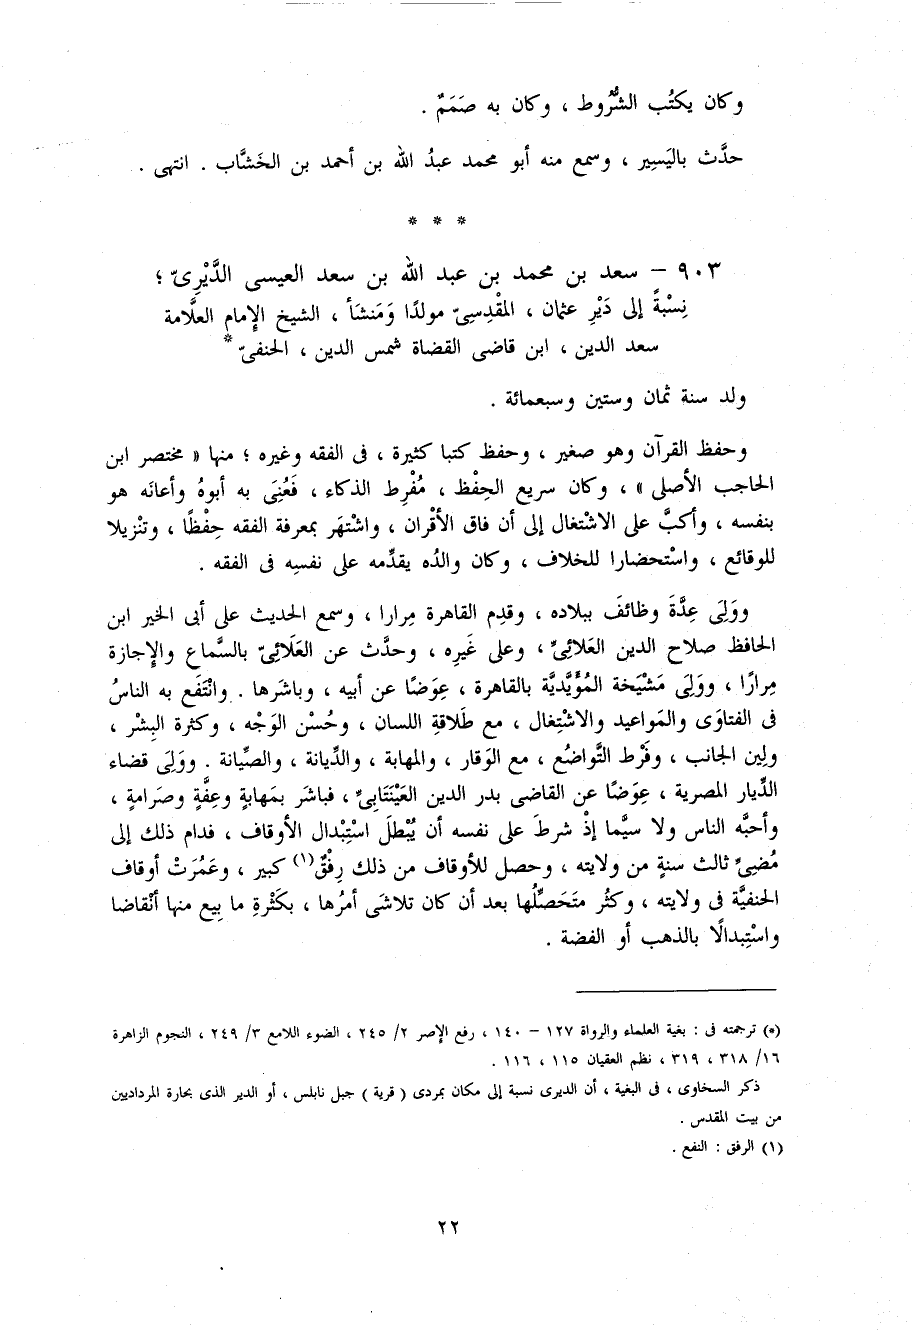 وكان يكتُب الشُّرُوط ، وكان به صَمَمٌ .
حدَّث باليَسِير ، وسمع منه أبو محمد عبدُ الله بن أحمد بن الخَشَّاب . انتهى .
* * *
٩٠٣ – سعد بن محمد بن عبد الله بن سعد العيسى الدَّيْرِىّ ؛
نِسْبةً إلى دَيْرِ عثمان ، المقْدِسِىّ مولدًا وَمَنشَأ ، الشيخ الإمام العلَّامة
سعد الدين ، ابن قاضى القضاة شمس الدين ، الحنفىّ *
ولد سنة ثمان وستين وسبعمائة .
وحفظ القرآن وهو صغير ، وحفظ كتبا كثيرة ، فى الفقه وغيره ؛ منها « مختصر ابن
الحاجب الأصلى » ، وكان سريع الحِفْظ ، مُفْرِط الذكاء ، فَعُنِىَ به أبوهُ وأعانَه هو
بنفسه ، وأكبَّ على الاشْتغال إلى أن فاق الأقْران ، واشْتهَر بمعرفة الفقه حِفْظًا ، وتنْزيلا
للوقائع ، واسْتحضارا للخلاف ، وكان والدُه يقدِّمه على نفسِه فى الفقه .
ووَلِىَ عِدَّةَ وظائفَ ببلاده ، وقدِم القاهرة مِرارا ، وسمع الحديث على أبى الخير ابن
الحافظ صلاح الدين العَلائِىِّ ، وعلى غَيرِه ، وحدَّث عن العَلَائِىّ بالسَّماع والإجازة
مِرارًا ، ووَلِىَ مَشْيَخة المُؤَيَّدِيَّة بالقاهرة ، عِوَضًا عن أبيه ، وباشَرها . وانْتَفَع به الناسُ
فى الفتاوَى والمَواعيد والاشْتِغال ، مع طَلاقةِ اللسان ، وحُسْن الوَجْه ، وكثرة البِشْر ،
ولِين الجانب ، وفَرْط التَّواضُع ، مع الوَقار ، والمهابة ، والدِّيانة ، والصِّيانة . ووَلِىَ قضاء
الدِّيار المصرية ، عِوَضًا عن القاضى بدر الدين العَيْنَتَابِىِّ ، فباشَر بمَهابةٍ وعِفَّةٍ وصَرامةٍ ،
وأحبَّه الناس ولا سيَّما إذْ شرطَ على نفسه أن يُبْطلَ اسْتِبْدال الأوقاف ، فدام ذلك إلى
مُضِىِّ ثالث سنةٍ من ولايته ، وحصل للأوقاف من ذلك رِفْقٌ (١) كبير ، وعَمُرَتْ أوقاف
الحنفيَّة فى ولايته ، وكثُر متَحَصِّلُها بعد أن كان تلاشَى أمرُها ، بكَثْرةِ ما بِيع منها أنْقاضا
واسْتِبدالًا بالذهب أو الفضة .
(*) ترجمته فى : بغية العلماء والرواة ١٢٧ – ١٤٠ ، رفع الإصر ٢/ ٢٤٥ ، الضوء اللامع ٣/ ٢٤٩ ، النجوم الزاهرة
١٦/ ٣١٨ ، ٣١٩ ، نظم العقيان ١١٥ ، ١١٦ .
ذكر السخاوى ، فى البغية ، أن الديرى نسبة إلى مكان بمردى ( قرية ) جبل نابلس ، أو الدير الذى بحارة المرداديين
من بيت المقدس .
(١) الرفق : النفع .
٢٢